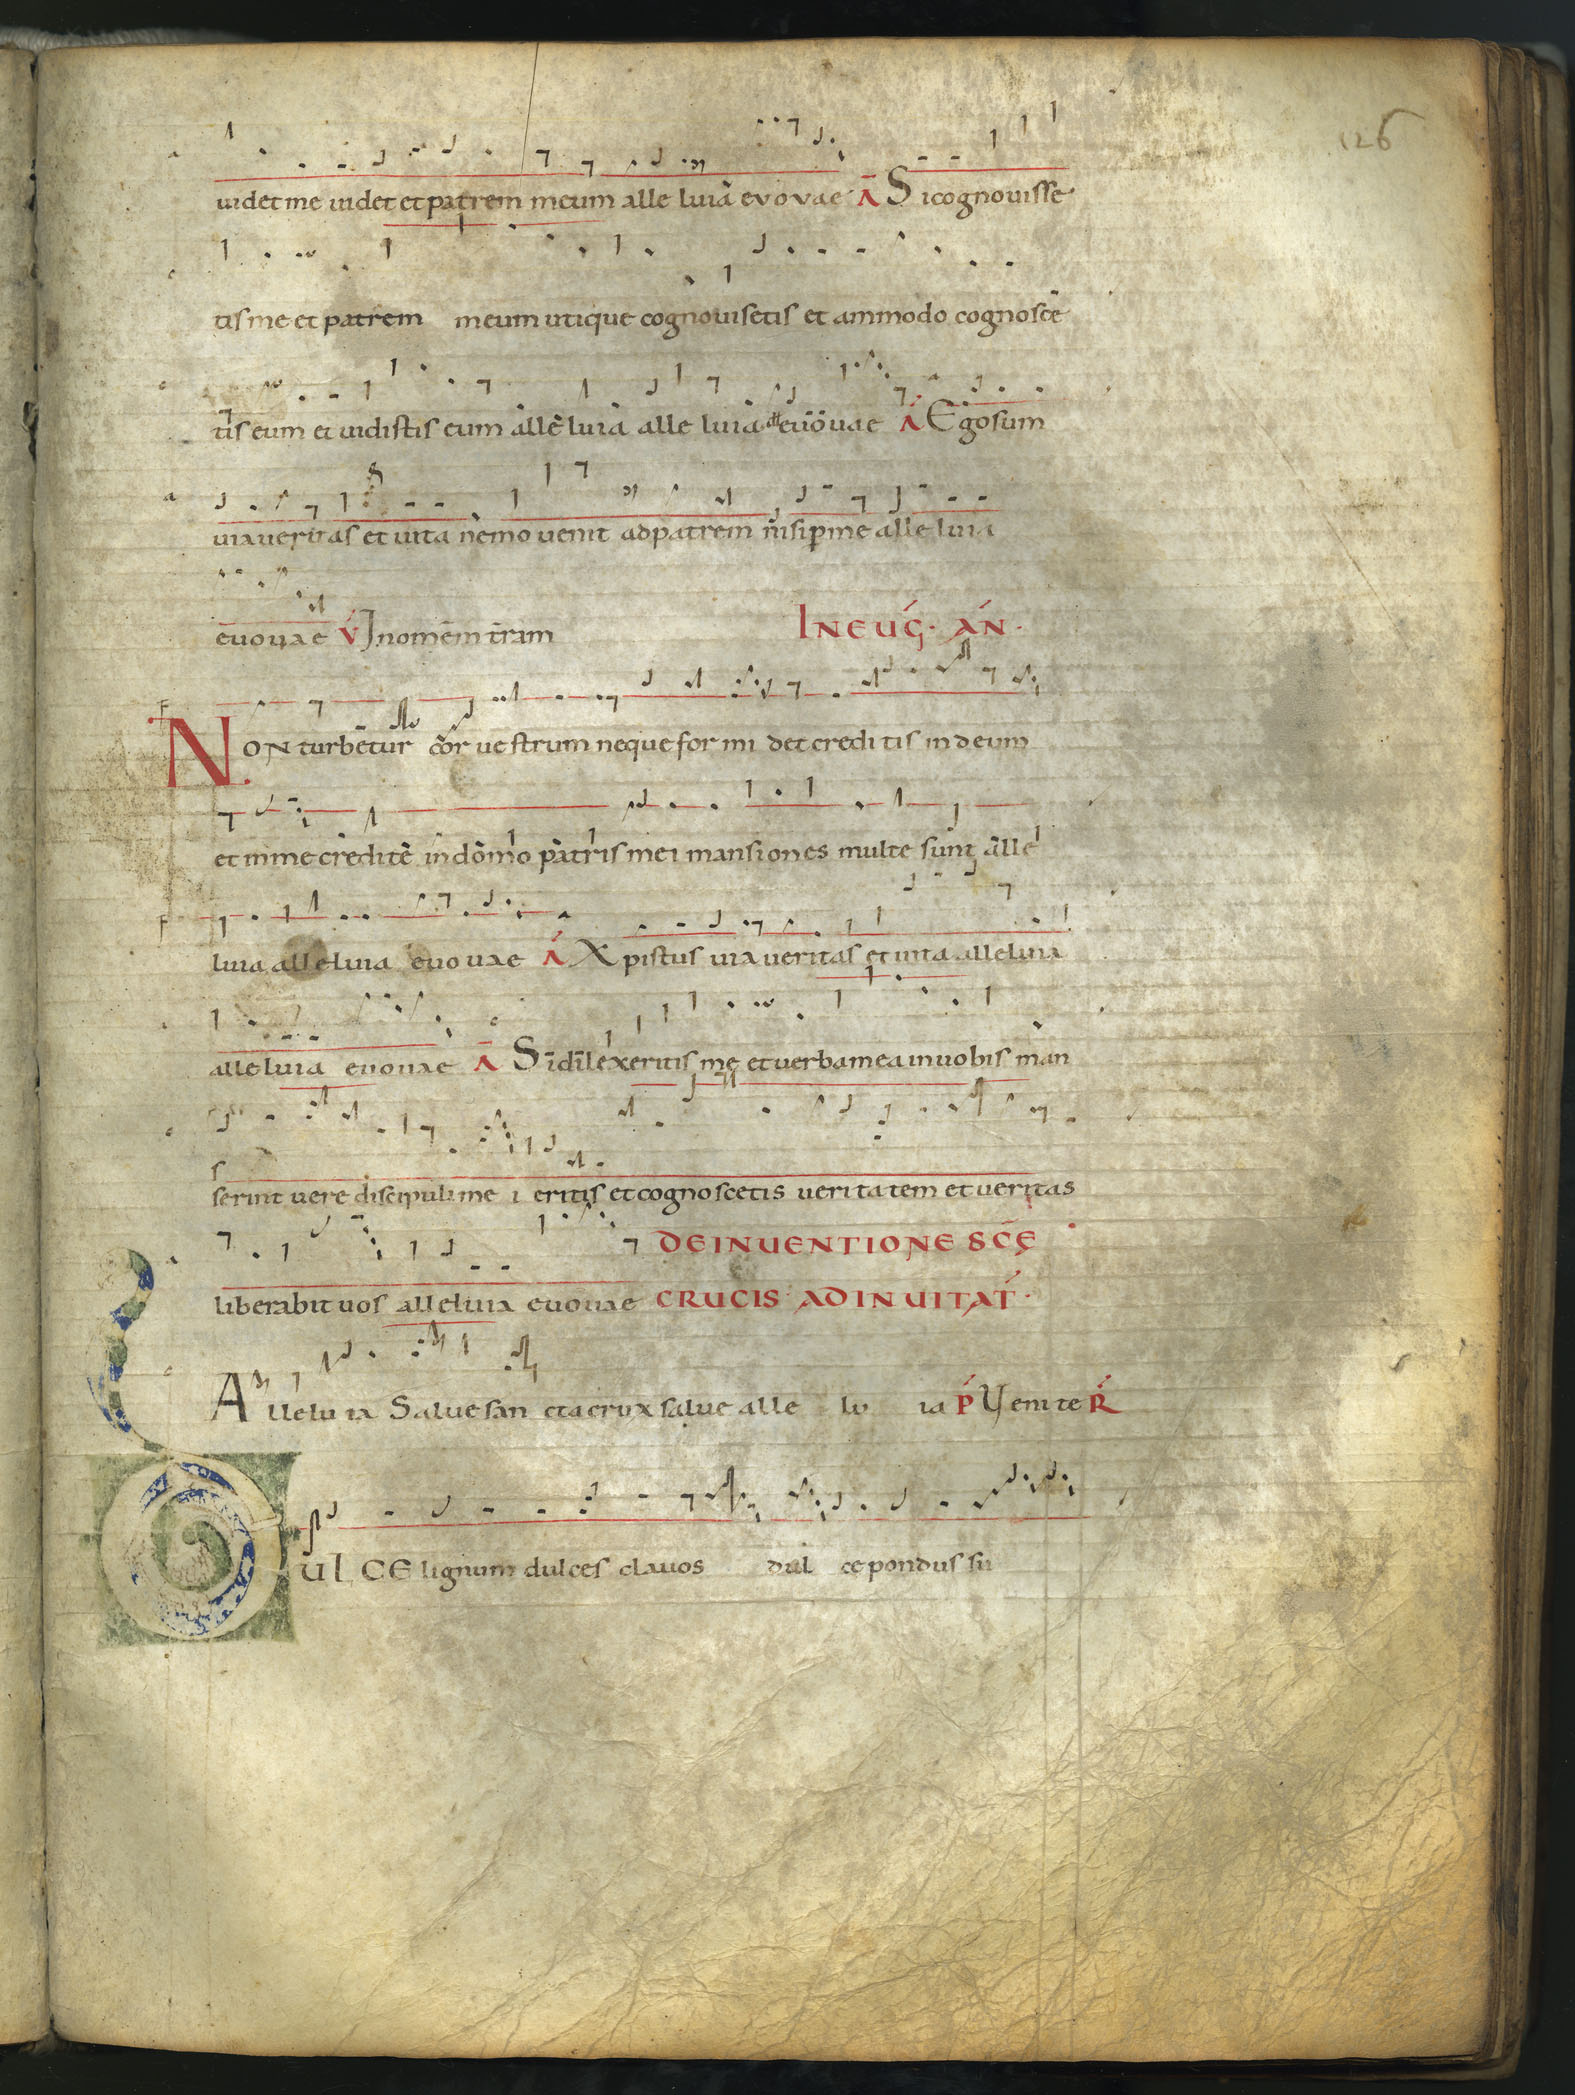 126
uidet me uidet et patrem meum alle luia evovae A Si cognouisse
tis me et patrem meum utique cognouisetis et ammodo cognosce
tis eum et uidistis eum alle luia alle luia euouae A Ego sum
uia ueritas et uita nemo uenit ad patrem nisi p me alle luia
euouae V In omem tram IN EUG. AN.
NON turbetur cor uestrum neque for mi det credi tis in deum
et in me credite in domo patris mei mansiones multe sunt alle
luia alleluia euouae A Xpistus uia ueritas et uita alleluia
alleluia euouae A Si dilexeritis me et uerba mea in uobis man
serint uere discipuli me i eritis et cognoscetis ueritatem et ueritas
liberabit uos alleluia euouae DE INUENTIONE SCĘ
CRUCIS AD INUITAT.
Allelu ia Salue san cta crux salue alle lu ia P Uenite R
DULCE lignum dulces clauos dul ce pondus su